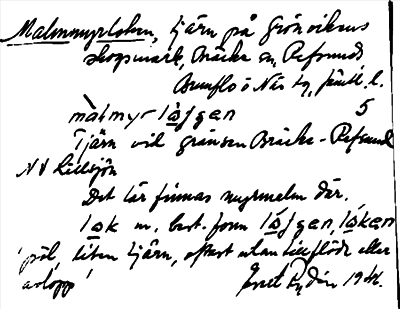 Malmmyrloken, tjärn på Grönvikens
skogsmark, Bräcke sn, Refsunds
Brunflo o Näs tg, Jämtl. l.
màlmy-lo̱jgen 5
Tjärn vid gränsen Bräcke - Refsund
NV Lillsjön
Det lär finnas myrmalm där.
lo̱k m. best. form ló̱jgen, ló̱ken
'pöl, liten tjärn, oftast utan tillflöde eller
avlopp'
Rydén 1944.